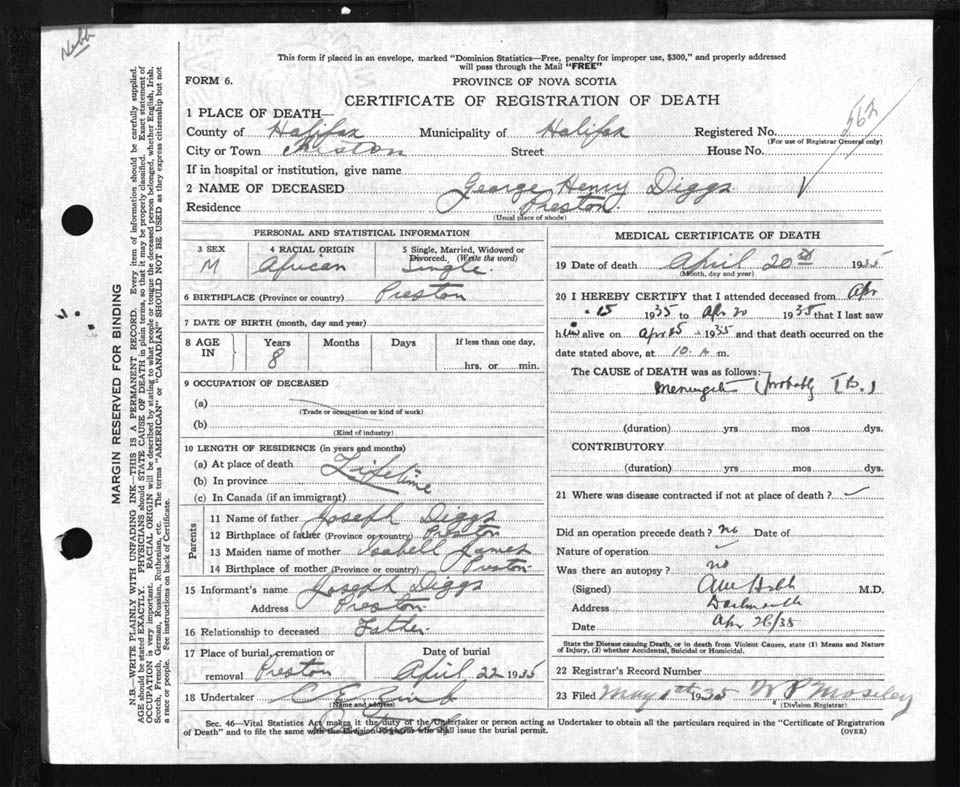 Hebb
This form if placed in an envelope, marked "Dominion Statistics—Free, penalty for improper use, $300," and properly addressed
will pass through the Mail "FREE"
FORM 6.
PROVINCE OF NOVA SCOTIA
CERTIFICATE OF REGISTRATION OF DEATH
562
1 PLACE OF DEATH—
County of Halifax Municipality of Halifax Registered No.
(For use of Registrar General only)
City or Town Preston Street House No.
If in hospital or institution, give name
2 NAME OF DECEASED George Henry Diggs
Residence Preston
(Usual place of abode)
PERSONAL AND STATISTICAL INFORMATION
3 SEX 4 RACIAL ORIGIN 5 Single, Married, Widowed or
Divorced. (Write the word)
M African Single.
6 BIRTHPLACE (Province or country) Preston
7 DATE OF BIRTH (month, day and year)
8 AGE IN Years Months Days If less than one day,
8 hrs. or min.
9 OCCUPATION OF DECEASED
(a)
(Trade or occupation or kind of work)
(b)
(Kind of industry)
10 LENGTH OF RESIDENCE (in years and months)
(a) At place of death Lifetime
(b) In province
(c) In Canada (if an immigrant)
Parents
11 Name of father Joseph Diggs
12 Birthplace of father (Province or country) Preston
13 Maiden name of mother Isabell James
14 Birthplace of mother (Province or country) Preston
15 Informant's name Joseph Diggs
Address Preston
16 Relationship to deceased Father
17 Place of burial, cremation or Date of burial
removal Preston April 22 1935
18 Undertaker C E
(Name and address)
MEDICAL CERTIFICATE OF DEATH
19 Date of death April 20th 1935
(Month, day and year)
20 I HEREBY CERTIFY that I attended deceased from Apr
15 1935 to Apr 20 1935 that I last saw
him alive on Apr 15 1935 and that death occurred on the
date stated above, at 10 A m.
The CAUSE of DEATH was as follows:
Meningitis (probably TB.)
(duration) yrs mos dys.
CONTRIBUTORY
(duration) yrs mos dys.
21 Where was disease contracted if not at place of death?
Did an operation precede death? no Date of
Nature of operation
Was there an autopsy? no
(Signed) Hebb M.D.
Address Dartmouth
Date Apr 26/35
State the Disease causing Death, or in death from Violent Causes, state (1) Means and Nature
of Injury, (2) whether Accidental, Suicidal or Homicidal.
22 Registrar's Record Number
23 Filed May 1st 1935 W P Moseley
(Division Registrar)
Sec. 46—Vital Statistics Act makes it the duty of the Undertaker or person acting as Undertaker to obtain all the particulars required in the "Certificate of Registration
of Death" and to file the same with the Division Registrar who shall issue the burial permit.
(OVER)
MARGIN RESERVED FOR BINDING
N.B.—WRITE PLAINLY WITH UNFADING INK—THIS IS A PERMANENT RECORD. Every item of information should be carefully supplied.
AGE should be stated EXACTLY. PHYSICIANS should STATE CAUSE OF DEATH in plain terms, so that it may be properly classified. Exact statement of
OCCUPATION is very important. RACIAL ORIGIN will be described by stating to what people or tongue the deceased person belonged, whether English, Irish,
Scotch, French, German, Russian, Ruthenian, etc. The terms "AMERICAN" or "CANADIAN" SHOULD NOT BE USED as they express citizenship but not
a race or people. See instructions on back of Certificate.